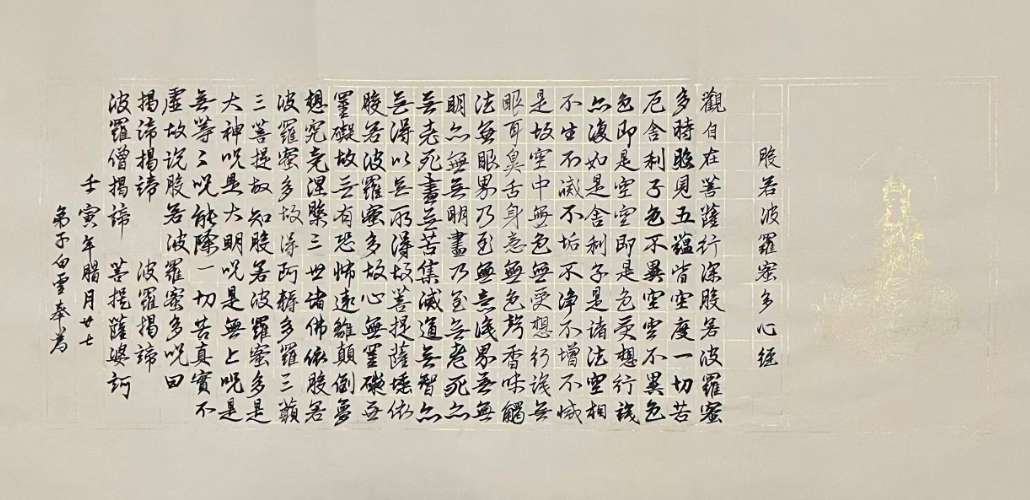 般若波羅蜜多心經
觀自在菩薩行深般若波羅蜜
多時照見五蘊皆空度一切苦
厄舍利子色不異空空不異色
色即是空空即是色受想行識
亦復如是舍利子是諸法空相
不生不滅不垢不淨不增不減
是故空中無色無受想行識無
眼耳鼻舌身意無色聲香味觸
法無眼界乃至無意識界無無
明亦無無明盡乃至無老死亦
無老死盡無苦集滅道無智亦
無得以無所得故菩提薩埵依
般若波羅蜜多故心無罣礙無
罣礙故無有恐怖遠離顛倒夢
想究竟涅槃三世諸佛依般若
波羅蜜多故得阿耨多羅三藐
三菩提故知般若波羅蜜多是
大神呪是大明呪是無上呪是
無等〻呪能除一切苦真實不
虛故說般若波羅蜜多呪曰
揭諦揭諦 波羅揭諦
波羅僧揭諦 菩提薩婆訶
壬寅年臘月廿七
弟子白雲奉為